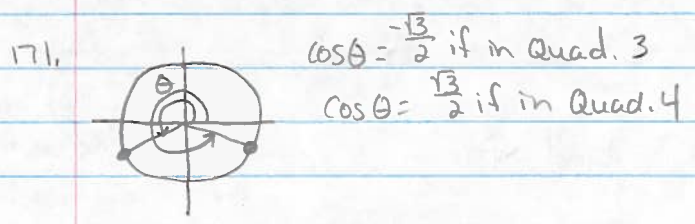 171.
θ
cosθ = -√3/2 if in Quad. 3
cosθ = √3/2 if in Quad. 4